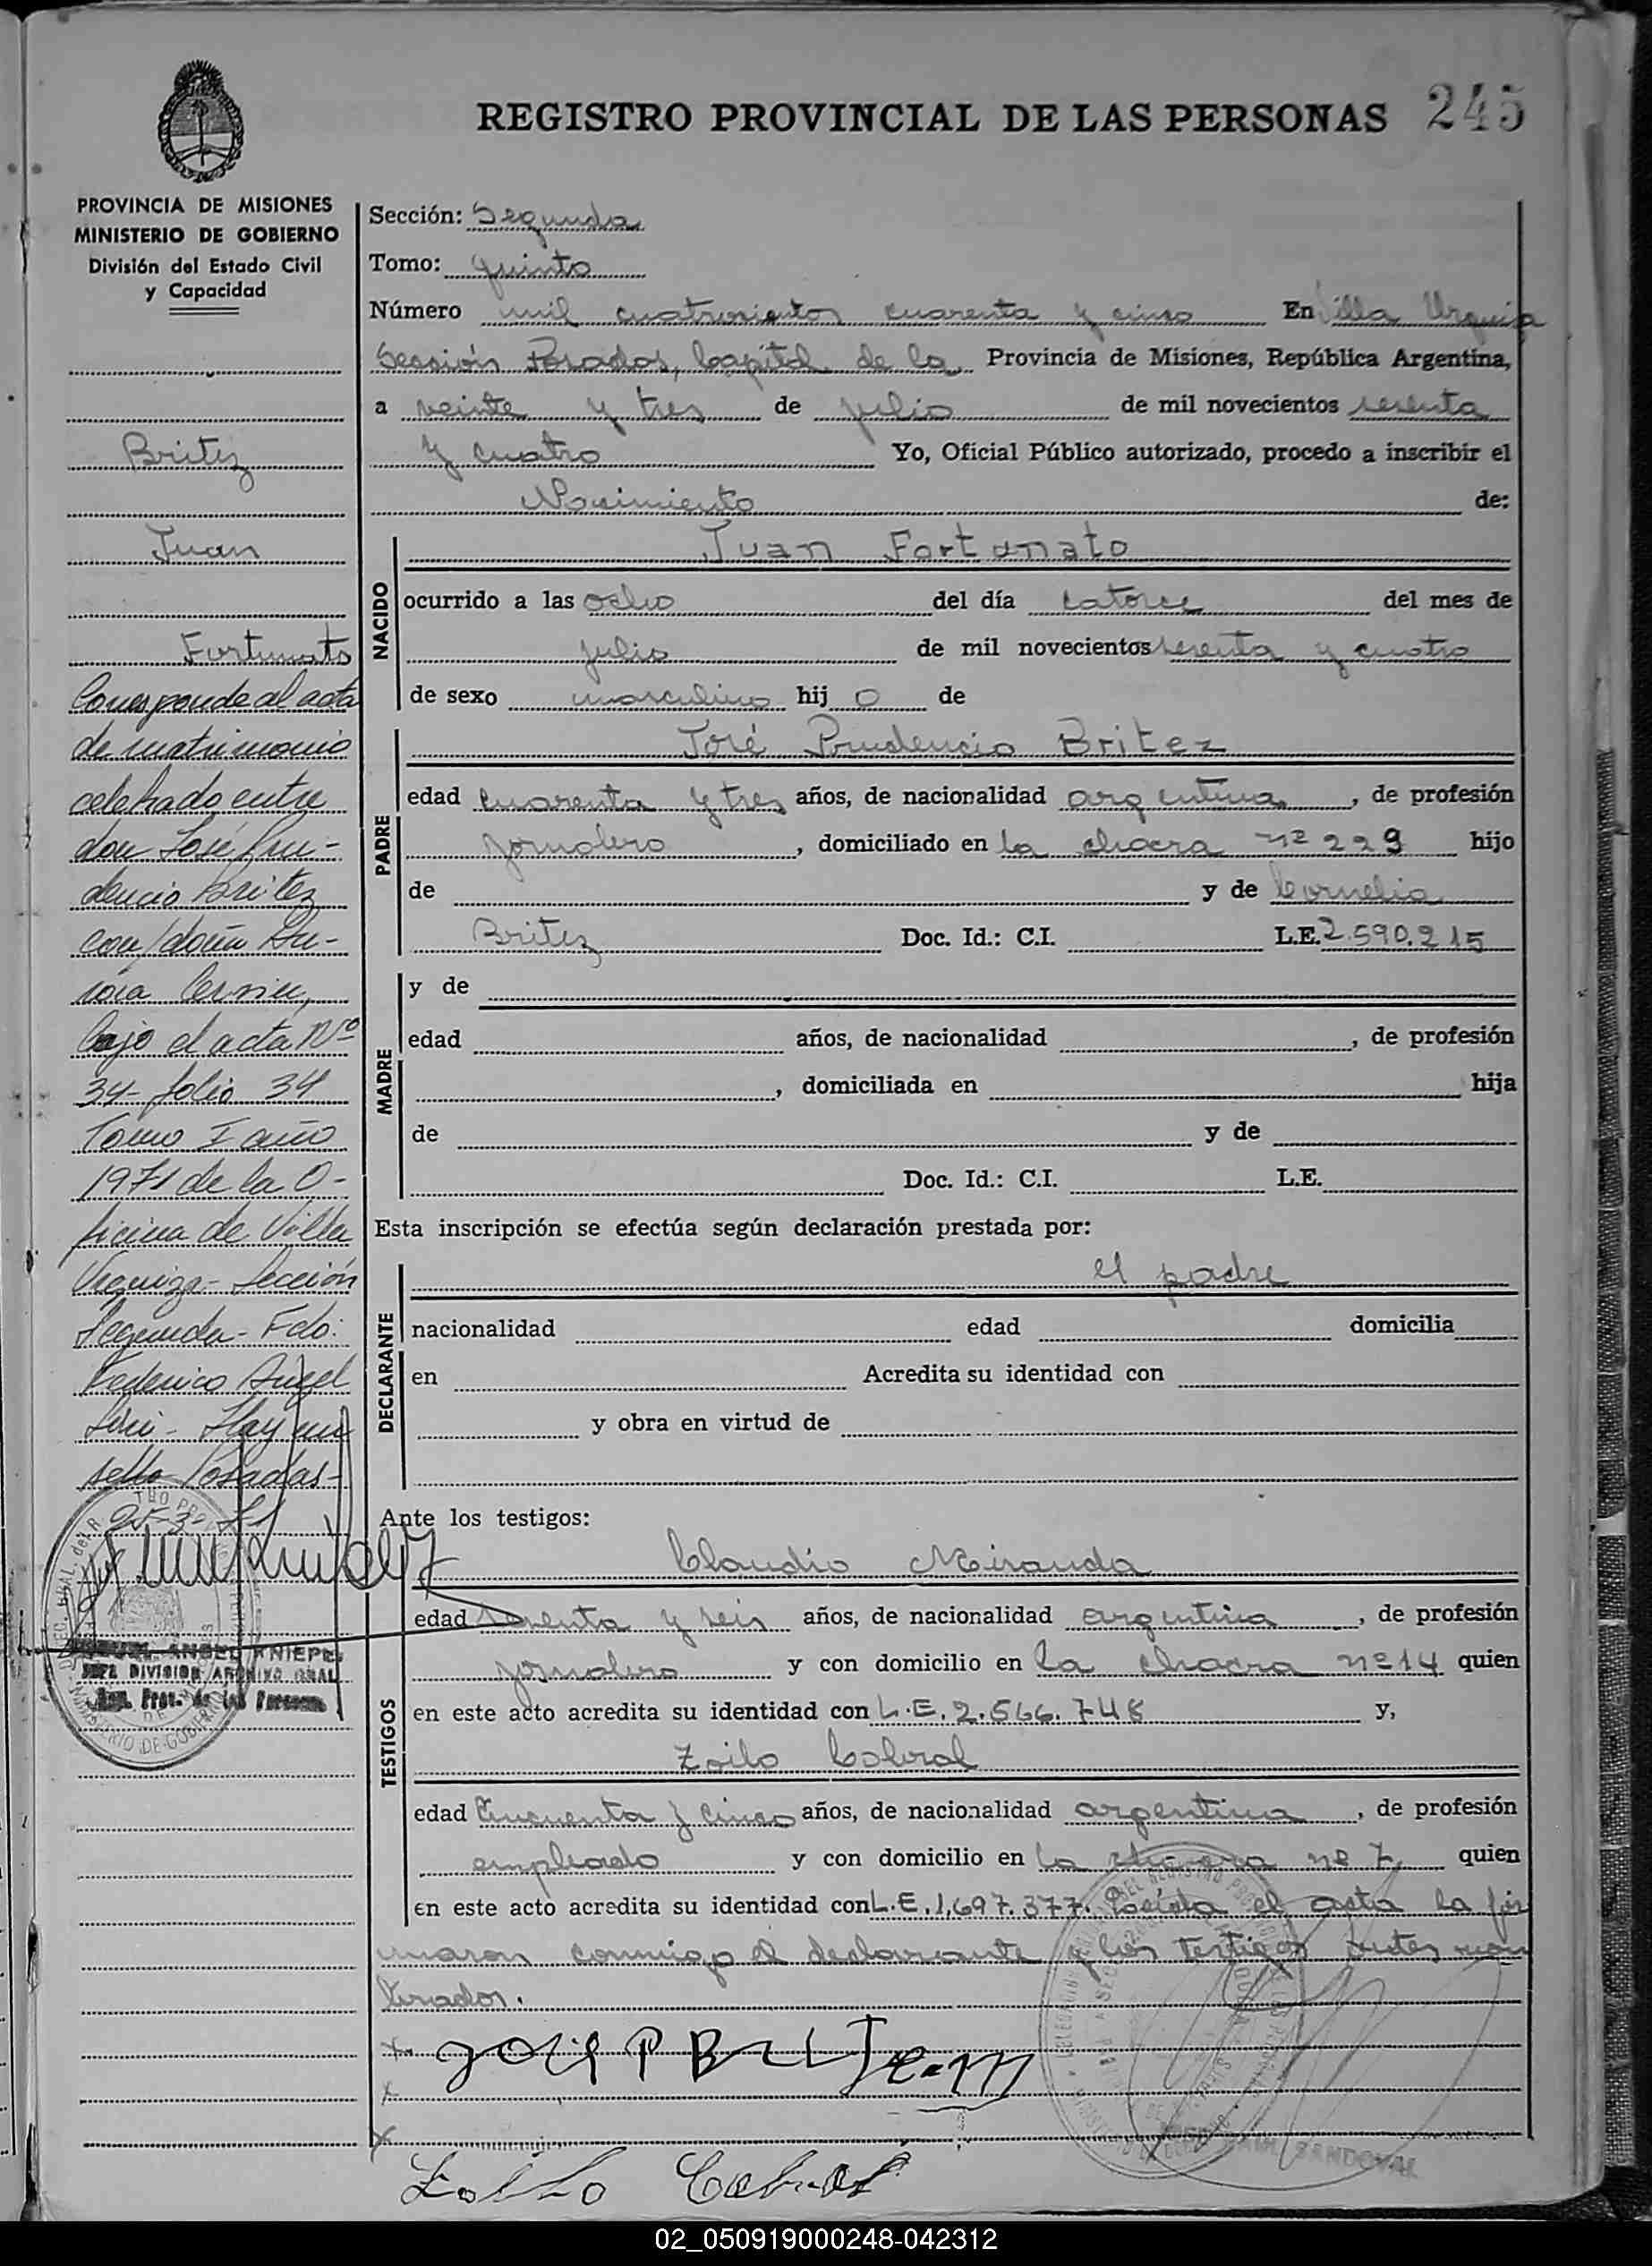 REGISTRO PROVINCIAL DE LAS PERSONAS 245
PROVINCIA DE MISIONES
MINISTERIO DE GOBIERNO
División del Estado Civil
y Capacidad
Britez
Juan
Fortunato
Corresponde al acta
de matrimonio
celebrado entre
don José Pru-
dencio Britez
con doña
bajo el acta Nº
34- folio 34
Tomo I año
1971 de la O-
ficina de Villa
Urquiza- Sección
Segunda- Fdo:
Federico Angel
Hay un
sello Posadas-
JEFE DIVISION ARCHIVO GRAL
Sección: Segunda
Tomo: quinto
Número mil cuatrocientos cuarenta y cinco En Villa Urquiza
Sección Posadas, Capital de la Provincia de Misiones, República Argentina,
a veinte y tres de julio de mil novecientos sesenta
y cuatro Yo, Oficial Público autorizado, procedo a inscribir el
Nacimiento de:
NACIDO
Juan Fortunato
ocurrido a las ocho del día catorce del mes de
julio de mil novecientos sesenta y cuatro
de sexo masculino hij o de
PADRE
José Prudencio Britez
edad cuarenta y tres años, de nacionalidad argentina, de profesión
jornalero, domiciliado en la chacra nº 229 hijo
de y de Cornelia
Britez Doc. Id.: C.I. L.E. 2.590.215
MADRE
y de
edad años, de nacionalidad , de profesión
, domiciliada en hija
de y de
Doc. Id.: C.I. L.E.
Esta inscripción se efectúa según declaración prestada por:
DECLARANTE
el padre
nacionalidad edad domicilia
en Acredita su identidad con
y obra en virtud de
Ante los testigos:
TESTIGOS
Claudio Miranda
edad y seis años, de nacionalidad argentina, de profesión
jornalero y con domicilio en la chacra nº 14 quien
en este acto acredita su identidad con L.E. 2.566.748 y,
Zoilo Cabral
edad Cincuenta y cinco años, de nacionalidad argentina, de profesión
empleado y con domicilio en la chacra nº 7, quien
en este acto acredita su identidad con L.E. 1,697.377. Leída el acta la fir
maron conmigo el declarante y los testigos antes nom
brados.
José P Britez
Zoilo Cabral
SANDOVAL
02_050919000248-042312